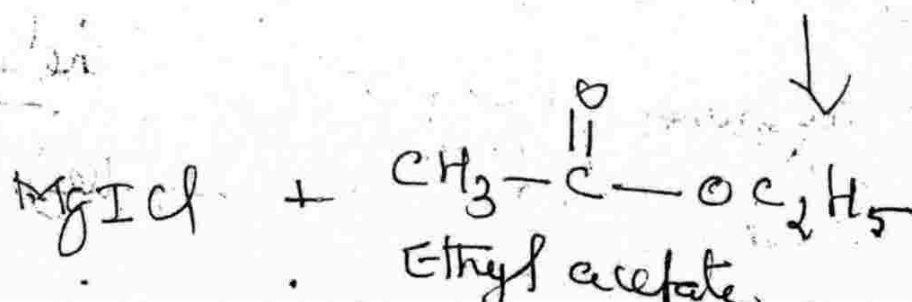 O
MgICl + CH3—C—OC2H5
Ethyl acetate